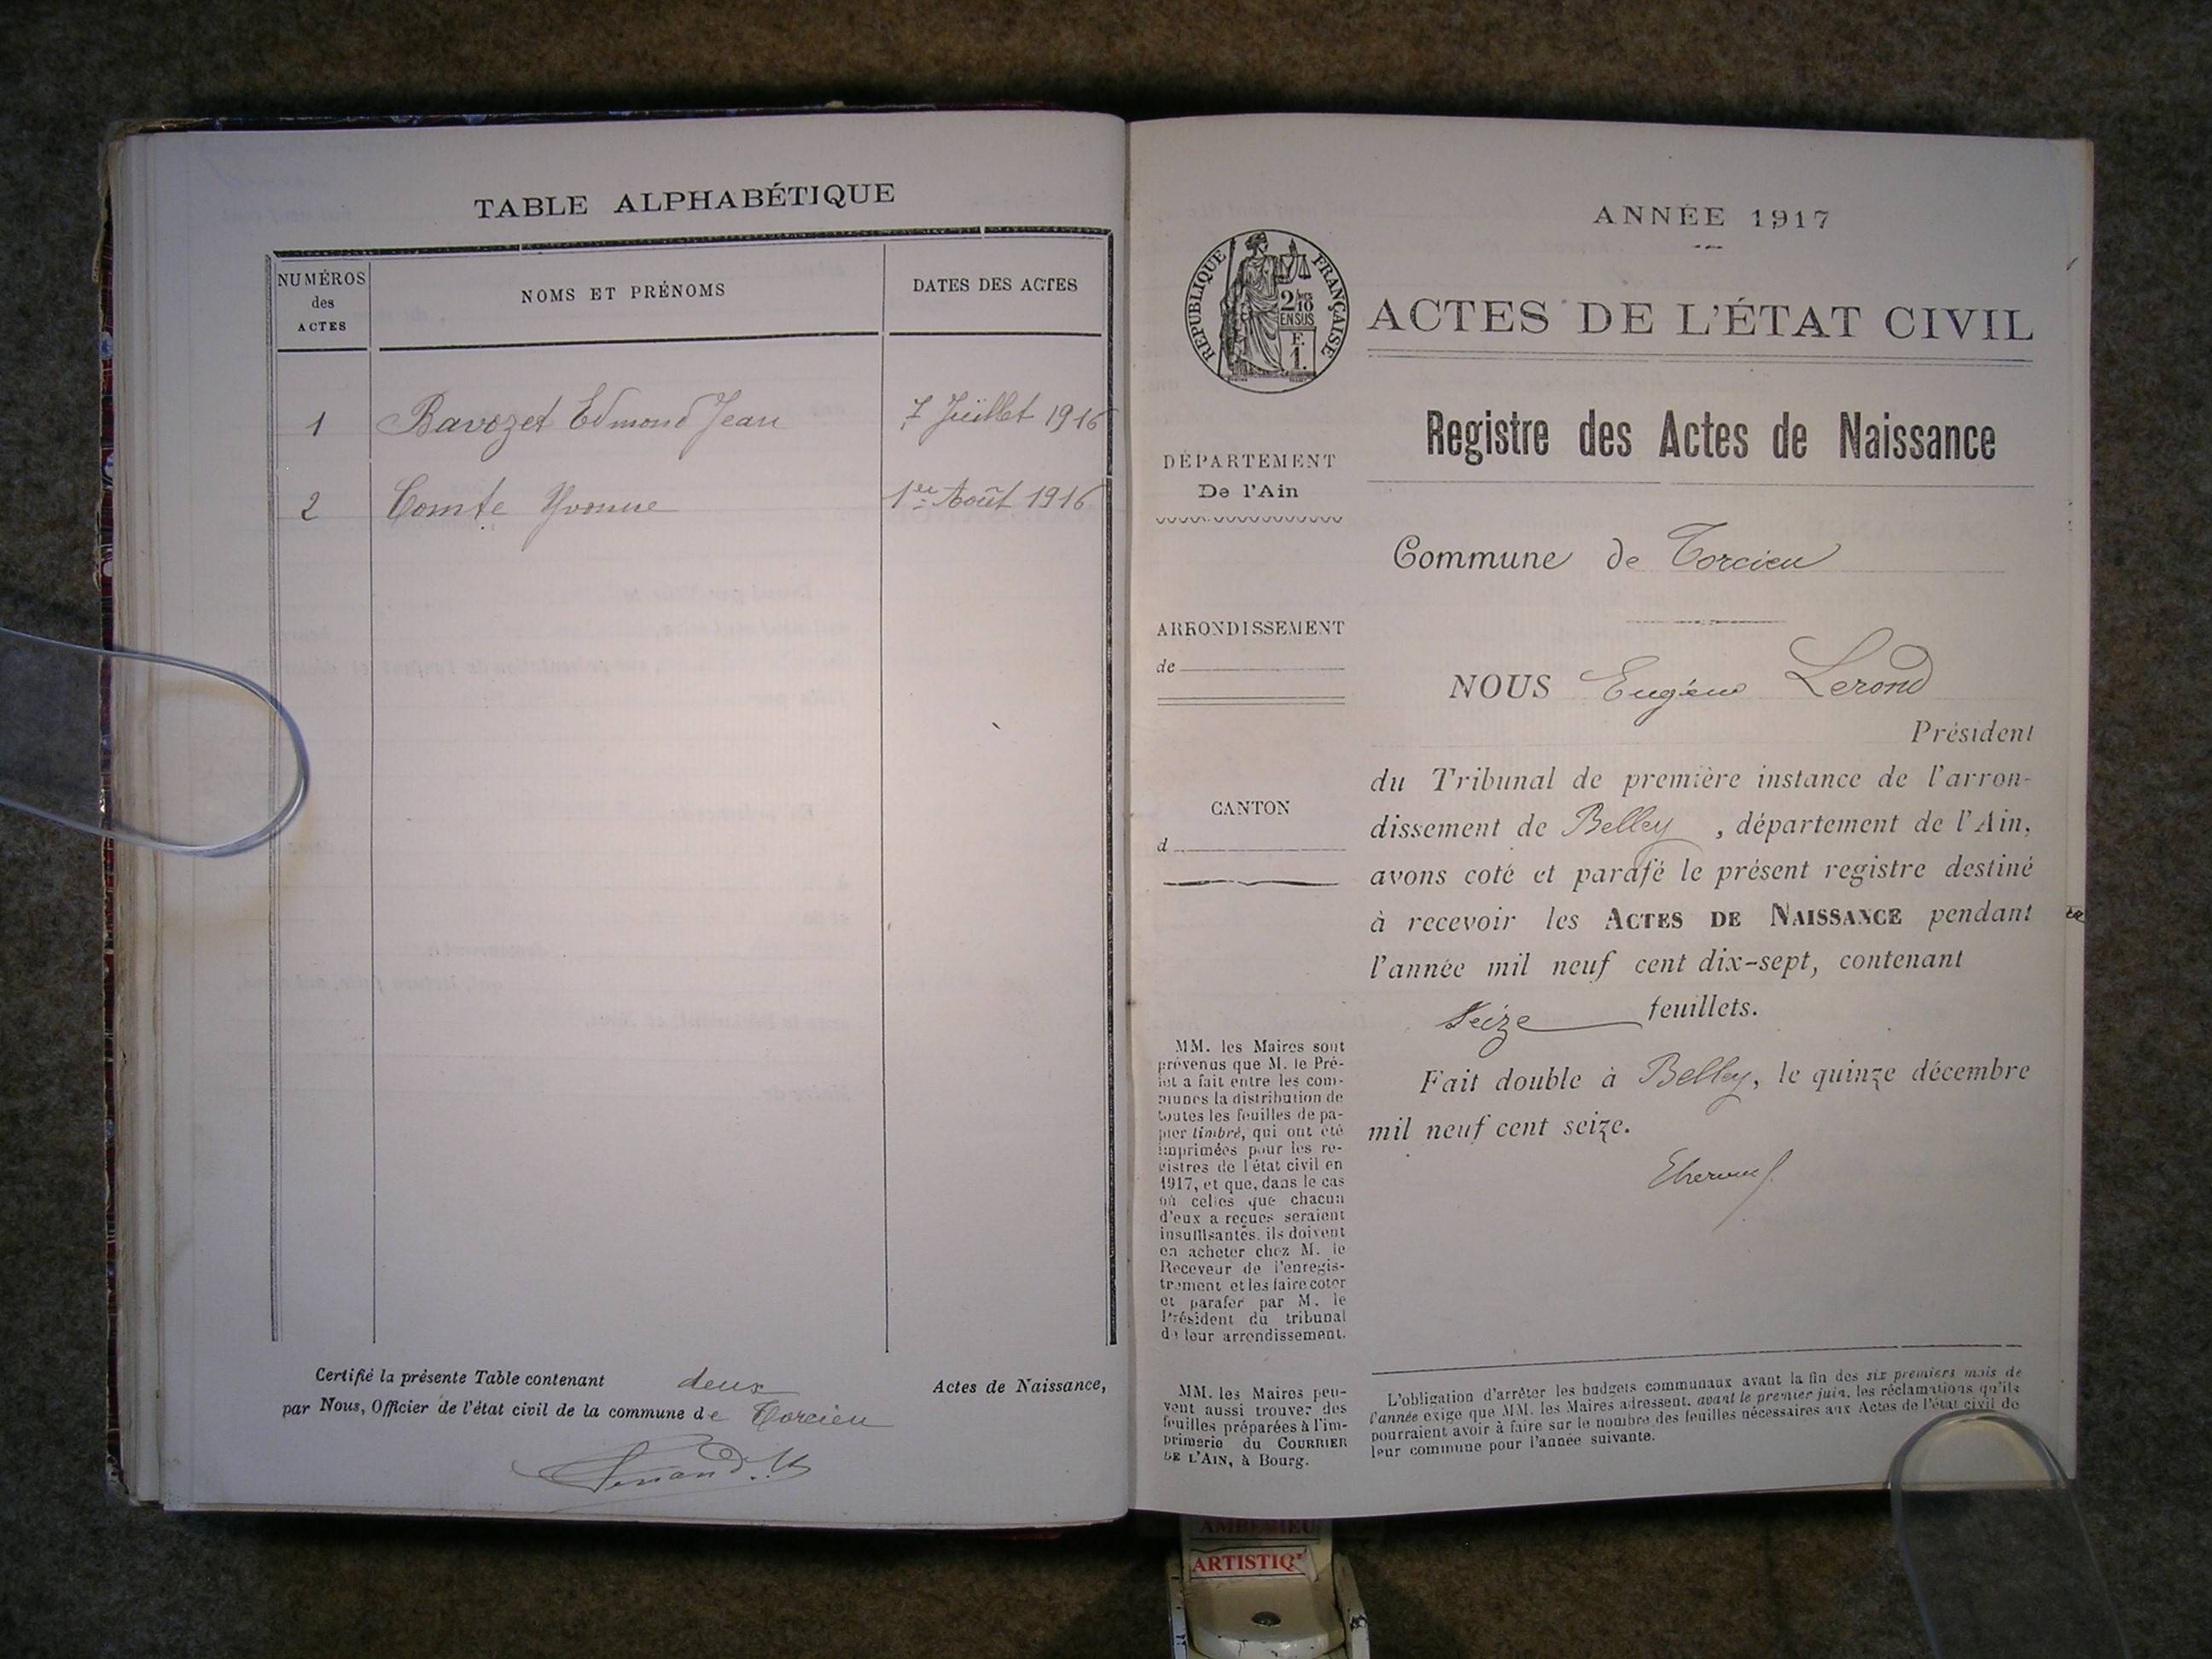 TABLE ALPHABÉTIQUE
NUMÉROS
des
ACTES
NOMS ET PRÉNOMS
DATES DES ACTES
1 Bavozet Edmond Jean 7 Juillet 1916
2 Comte Yvonne 1er Août 1916
Certifié la présente Table contenant deux Actes de Naissance,
par Nous, Officier de l'état civil de la commune de Torcieu
ANNÉE 1917
RÉPUBLIQUE FRANÇAISE
2/10
EN SUS
F.
1.
ACTES DE L'ÉTAT CIVIL
Registre des Actes de Naissance
DÉPARTEMENT
De l'Ain
ARRONDISSEMENT
de
CANTON
d
MM. les Maires sont
prévenus que M. le Pré-
fet a fait entre les com-
munes la distribution de
toutes les feuilles de pa-
pier timbré, qui ont été
imprimées pour les re-
gistres de l'état civil en
1917, et que, dans le cas
où celles que chacun
d'eux a reçues seraient
insuffisantes, ils doivent
en acheter chez M. le
Receveur de l'enregis-
trement et les faire coter
et parafer par M. le
Président du tribunal
de leur arrondissement.
MM. les Maires peu-
vent aussi trouver des
feuilles préparées à l'im-
primerie du COURRIER
DE L'AIN, à Bourg.
Commune de Torcieu
NOUS Eugène Lerond
Président
du Tribunal de première instance de l'arron-
dissement de Belley, département de l'Ain,
avons coté et parafé le présent registre destiné
à recevoir les ACTES DE NAISSANCE pendant
l'année mil neuf cent dix-sept, contenant
seize feuillets.
Fait double à Belley, le quinze décembre
mil neuf cent seize.
L'obligation d'arrêter les budgets communaux avant la fin des six premiers mois de
l'année exige que MM. les Maires adressent, avant le premier juin, les réclamations qu'ils
pourraient avoir à faire sur le nombre des feuilles nécessaires aux Actes de l'état civil de
leur commune pour l'année suivante.
AMBERIEU
ARTISTIQ